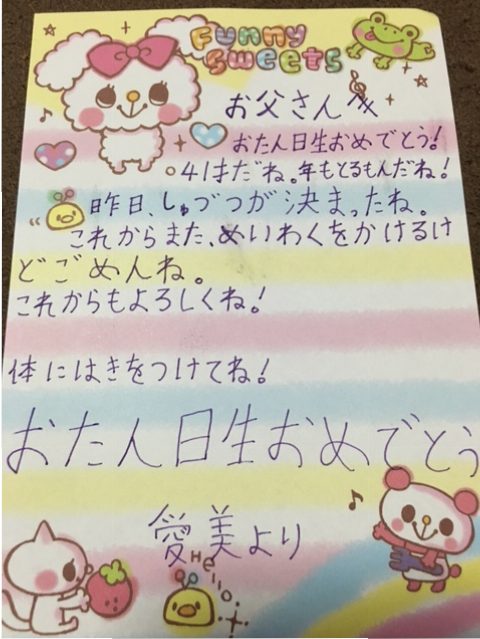 Funny
Sweets
お父さんへ
おたん日生おめでとう!
。41才だね。年もとるもんだね!
昨日、しゅづつが決まったね。
これからまた、めいわくをかけるけ
どごめんね。
これからもよろしくね!
体にはきをつけてね!
おたん日生おめでとう
愛美より
Hello